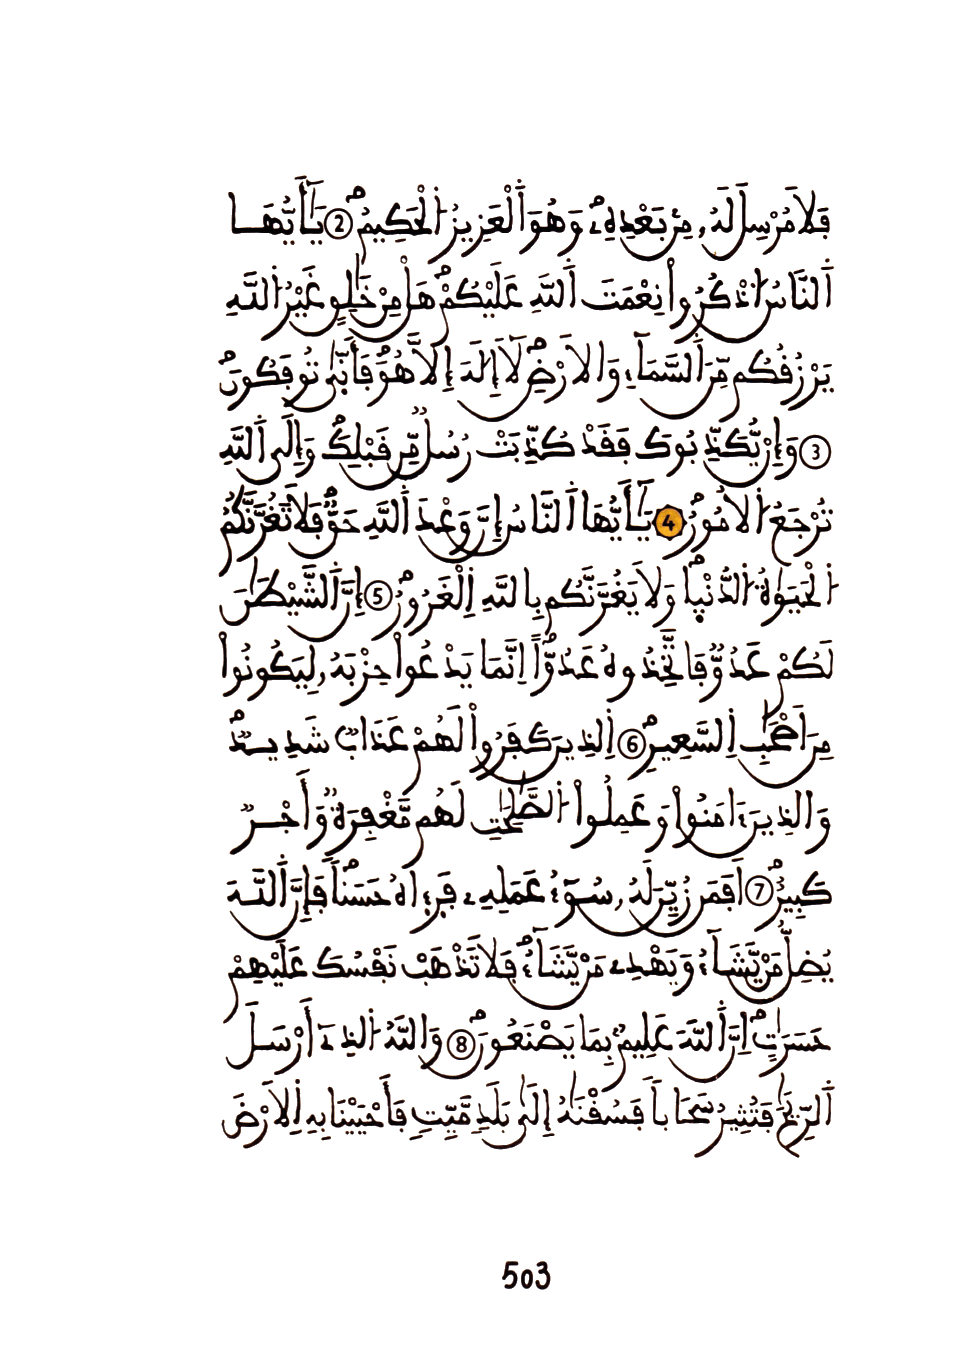 فَلَا مُرْسِلَ لَهُۥ مِنۢ بَعْدِهِۦۖ وَهُوَ اَ۬لْعَزِيزُ اُ۬لْحَكِيمُۖ ② يَٰٓأَيُّهَا
اَ۬لنَّاسُ اُ۟ذْكُرُواْ نِعْمَتَ اَ۬للَّهِ عَلَيْكُمْۖ هَلْ مِنْ خَٰلِقٍ غَيْرُ اُ۬للَّهِ
يَرْزُقُكُم مِّنَ اَ۬لسَّمَآءِ وَالَارْضِۖ لَآ إِلَٰهَ إِلَّا هُوَۖ فَأَنّ۪يٰ تُوفَكُونَۖ
③ وَإِنْ يُّكَذِّبُوكَ فَقَدْ كُذِّبَتْ رُسُلٞ مِّن قَبْلِكَۖ وَإِلَى اَ۬للَّهِ
تُرْجَعُ اُ۬لُامُورُۖ ④ يَٰٓأَيُّهَا اَ۬لنَّاسُ إِنَّ وَعْدَ اَ۬للَّهِ حَقّٞۖ فَلَا تَغُرَّنَّكُمُ
اُ۬لْحَيَوٰةُ اُ۬لدُّنْي۪اۖ وَلَا يَغُرَّنَّكُم بِاللَّهِ اِ۬لْغَرُورُۖ ⑤ إِنَّ اَ۬لشَّيْطَٰنَ
لَكُمْ عَدُوّٞ فَاتَّخِذُوهُ عَدُوّاًۖ اِنَّمَا يَدْعُواْ حِزْبَهُۥ لِيَكُونُواْ
مِنَ اَصْحَٰبِ اِ۬لسَّعِيرِۖ ⑥ اِ۬لذِينَ كَفَرُواْ لَهُمْ عَذَابٞ شَدِيدٞۖ
وَالذِينَ ءَامَنُواْ وَعَمِلُواْ اُ۬لصَّٰلِحَٰتِ لَهُم مَّغْفِرَةٞ وَأَجْرٞ
كَبِيرٌۖ ⑦ اَفَمَن زُيِّنَ لَهُۥ سُوٓءُ عَمَلِهِۦ فَر۪ء۪اهُ حَسَناٗۖ فَإِنَّ اَ۬للَّهَ
يُضِلُّ مَنْ يَّشَآءُ وَيَهْدِے مَنْ يَّشَآءُۖ فَلَا تَذْهَبْ نَفْسُكَ عَلَيْهِمْ
حَسَرَٰتٍۖ اِنَّ اَ۬للَّهَ عَلِيمُۢ بِمَا يَصْنَعُونَۖ ⑧ وَاللَّهُ اُ۬لذِےٓ أَرْسَلَ
اَ۬لرِّيَٰحَ فَتُثِيرُ سَحَاباٗ فَسُقْنَٰهُ إِلَىٰ بَلَدٖ مَّيِّتٖ فَأَحْيَيْنَا بِهِ اِ۬لَارْضَ
503